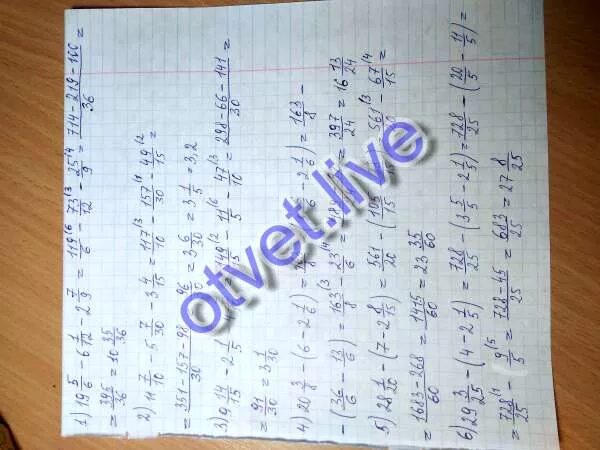 1) 19 5/6 - 6 1/12 - 2 7/9 = 119/6 - 73/12 - 25/9 = (714 - 219 - 100)/36 =
= 395/36 = 10 35/36
2) 11 7/10 - 5 7/30 - 3 4/15 = 117/10 - 157/30 - 49/15 =
= (351 - 157 - 98)/30 = 96/30 = 3 6/30 = 3 1/5 = 3,2
3) 9 14/15 - 2 1/5 - 47/10 = (298 - 66 - 141)/30 =
= 91/30 = 3 1/30
4) 20 3/8 - (6 - 2 1/6) = 163/8 -
- (36/6 - 13/6) = 163/8 - 23/6 = 397/24 = 16 13/24
5) 28 1/20 - (7 - 2 8/15) = 561/20 - (105/15 = 561 - 67/15
= (1683 - 268)/60 = 1415/60 = 23 35/60
6) 29 3/25 - (4 - 2 1/5) = 728/25 - (3 5/5 - 2 1/5) = 728/25 - (20/5 - 11/5) =
= 728/25 - 9/5 = (728 - 45)/25 = 683/25 = 27 8/25
otvet.live